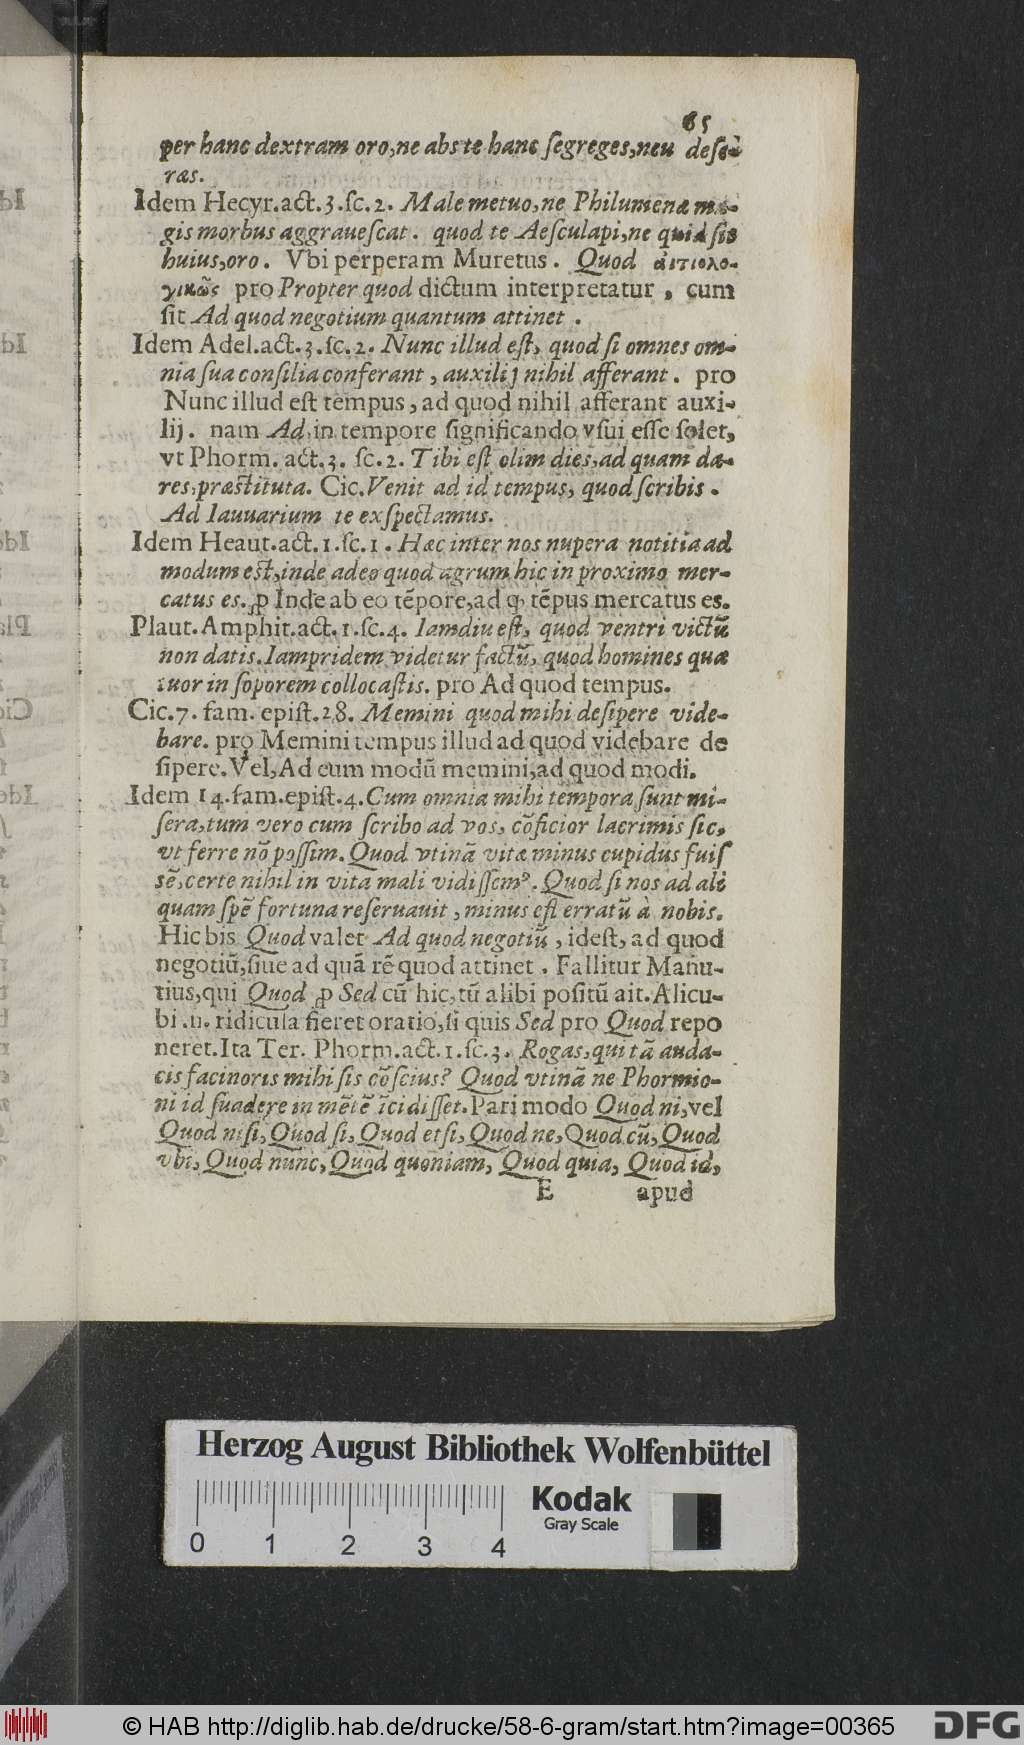 65
per hanc dextram oro,ne abs te hanc ſegreges,neu deſe-
ras.
Idem Hecyr.act.3.ſc.2. Male metuo,ne Philumenæ ma-
gis morbus aggraueſcat. quod te Aeſculapi,ne quid ſis
huius,oro. Vbi perperam Muretus. Quod αἰτιολο-
γικῶς pro Propter quod dictum interpretatur, cum
ſit Ad quod negotium quantum attinet.
Idem Adel.act.3.ſc.2. Nunc illud eſt, quod ſi omnes om-
nia ſua conſilia conferant, auxilij nihil afferant. pro
Nunc illud eſt tempus, ad quod nihil afferant auxi-
lij. nam Ad,in tempore ſignificando vſui eſſe ſolet,
vt Phorm. act.3. ſc.2. Tibi eſt olim dies,ad quam da-
res,præſtituta. Cic.Venit ad id tempus, quod ſcribis.
Ad Iauuarium te exſpectamus.
Idem Heaut.act.1.ſc.1. Hæc inter nos nupera notitia ad
modum eſt,inde adeo quod agrum hic in proximo mer-
catus es. ꝓ Inde ab eo tēpore,ad ꝙ tēpus mercatus es.
Plaut.Amphit.act.1.ſc.4. Iamdiu eſt, quod ventri victū
non datis.Iampridem videtur factū, quod homines qua
tuor in ſoporem collocaſtis. pro Ad quod tempus.
Cic.7. fam. epiſt.28. Memini quod mihi deſipere vide-
bare. pro Memini tempus illud ad quod videbare de
ſipere.Vel,Ad eum modū memini,ad quod modi.
Idem 14.fam.epiſt.4.Cum omnia mihi tempora ſunt mi-
ſera,tum vero cum ſcribo ad vos, cōficior lacrimis ſic,
vt ferre nō poſſim. Quod vtinā vitæ minus cupidus fuiſ
sē,certe nihil in vita mali vidiſſemꝰ. Quod ſi nos ad ali
quam ſpē fortuna reſeruauit, minus eſt erratū à nobis.
Hic bis Quod valet Ad quod negotiū, ideſt, ad quod
negotiū,ſiue ad quā rē quod attinet. Fallitur Manu-
tius,qui Quod ꝓ Sed cū hic,tū alibi poſitū ait.Alicu-
bi .n. ridicula fieret oratio,ſi quis Sed pro Quod repo
neret.Ita Ter. Phorm.act.1.ſc.3. Rogas,qui tā auda-
cis facinoris mihi ſis cōſcius? Quod vtinā ne Phormio-
ni id ſuadere in mētē īcidiſſet.Pari modo Quod ni,vel
Quod niſi, Quod ſi, Quod etſi, Quod ne, Quod cū, Quod
vbi, Quod nunc, Quod quoniam, Quod quia, Quod id,
E apud
Herzog August Bibliothek Wolfenbüttel
Kodak
Gray Scale
0 1 2 3 4
© HAB http://diglib.hab.de/drucke/58-6-gram/start.htm?image=00365
DFG